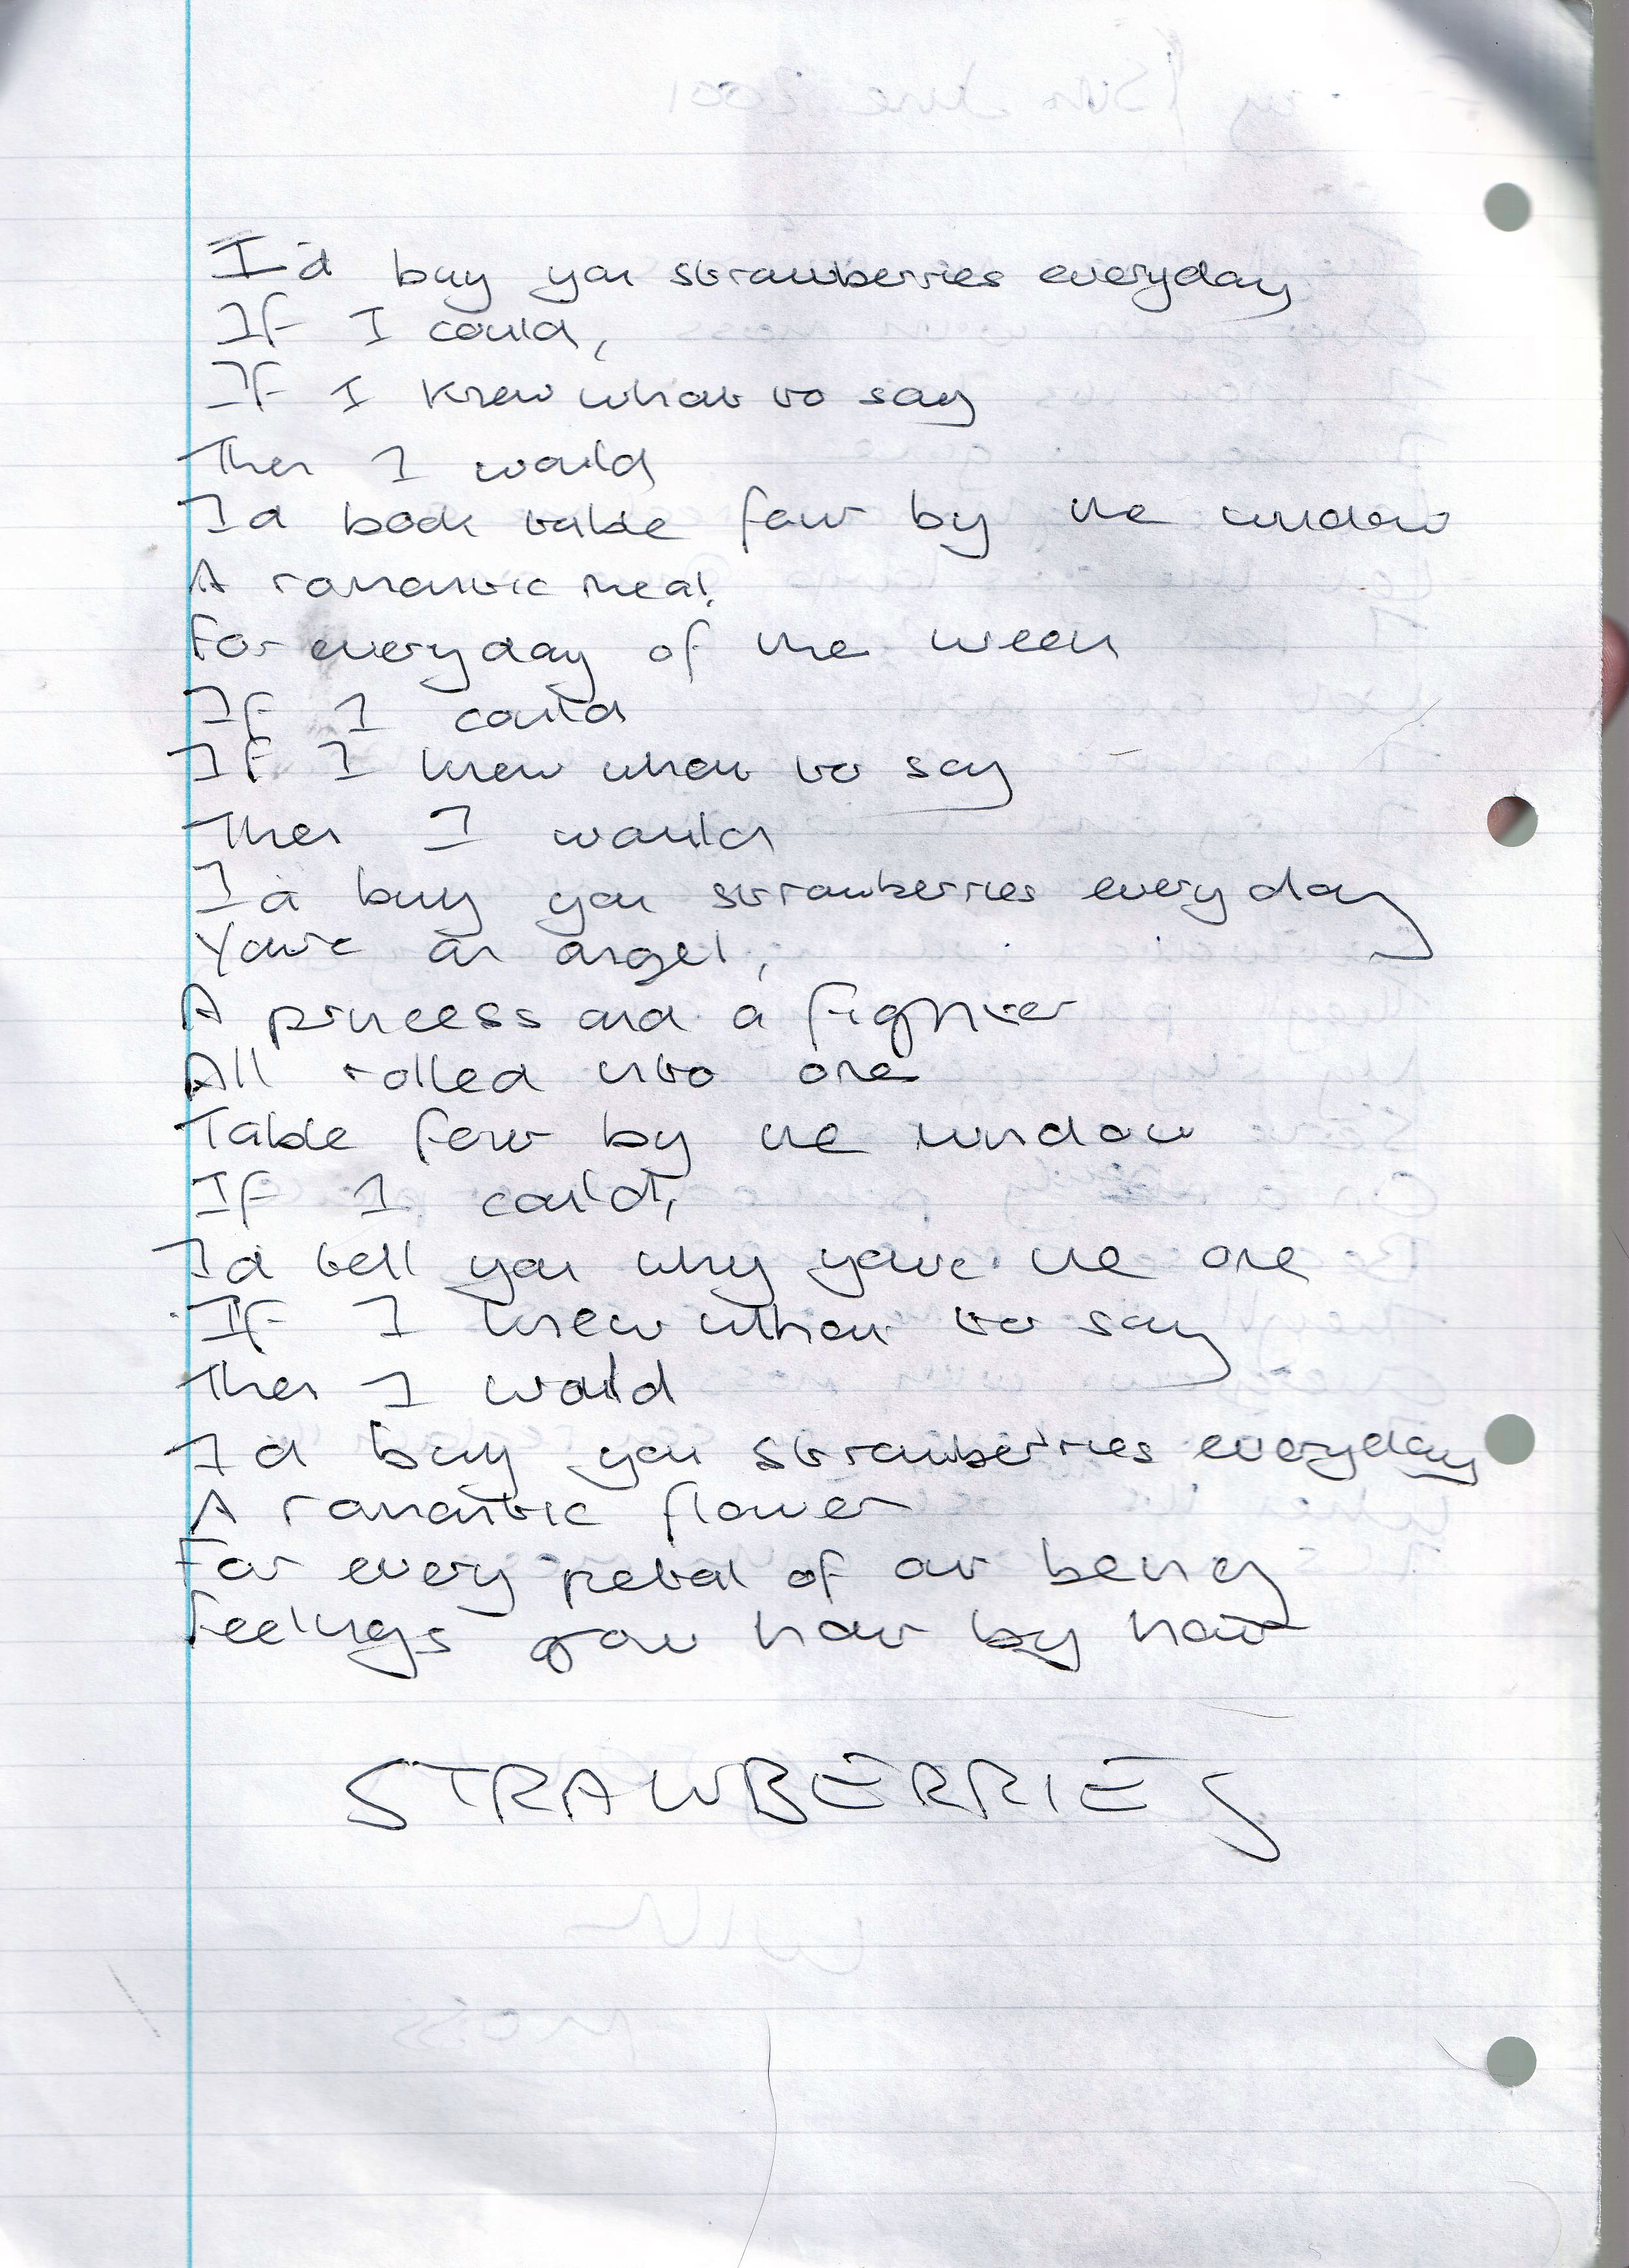 I'd buy you strawberries everyday
If I could,
If I knew what to say
Then I would
I'd book table four by the window
A romantic meal
For everyday of the week
If I could
If I knew what to say
Then I would
I'd buy you strawberries every day
You're an angel,
A princess and a fighter
All rolled into one
Table four by the window
If I could,
I'd tell you why you're the one
If I knew what to say
Then I would
I'd buy you strawberries everyday
A romantic flower
For every petal of our being
Feelings grow hour by hour
STRAWBERRIES